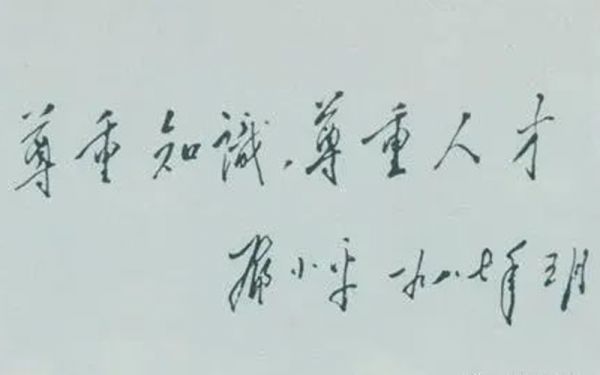 尊重知識、尊重人才
邓小平 一九八七年五月